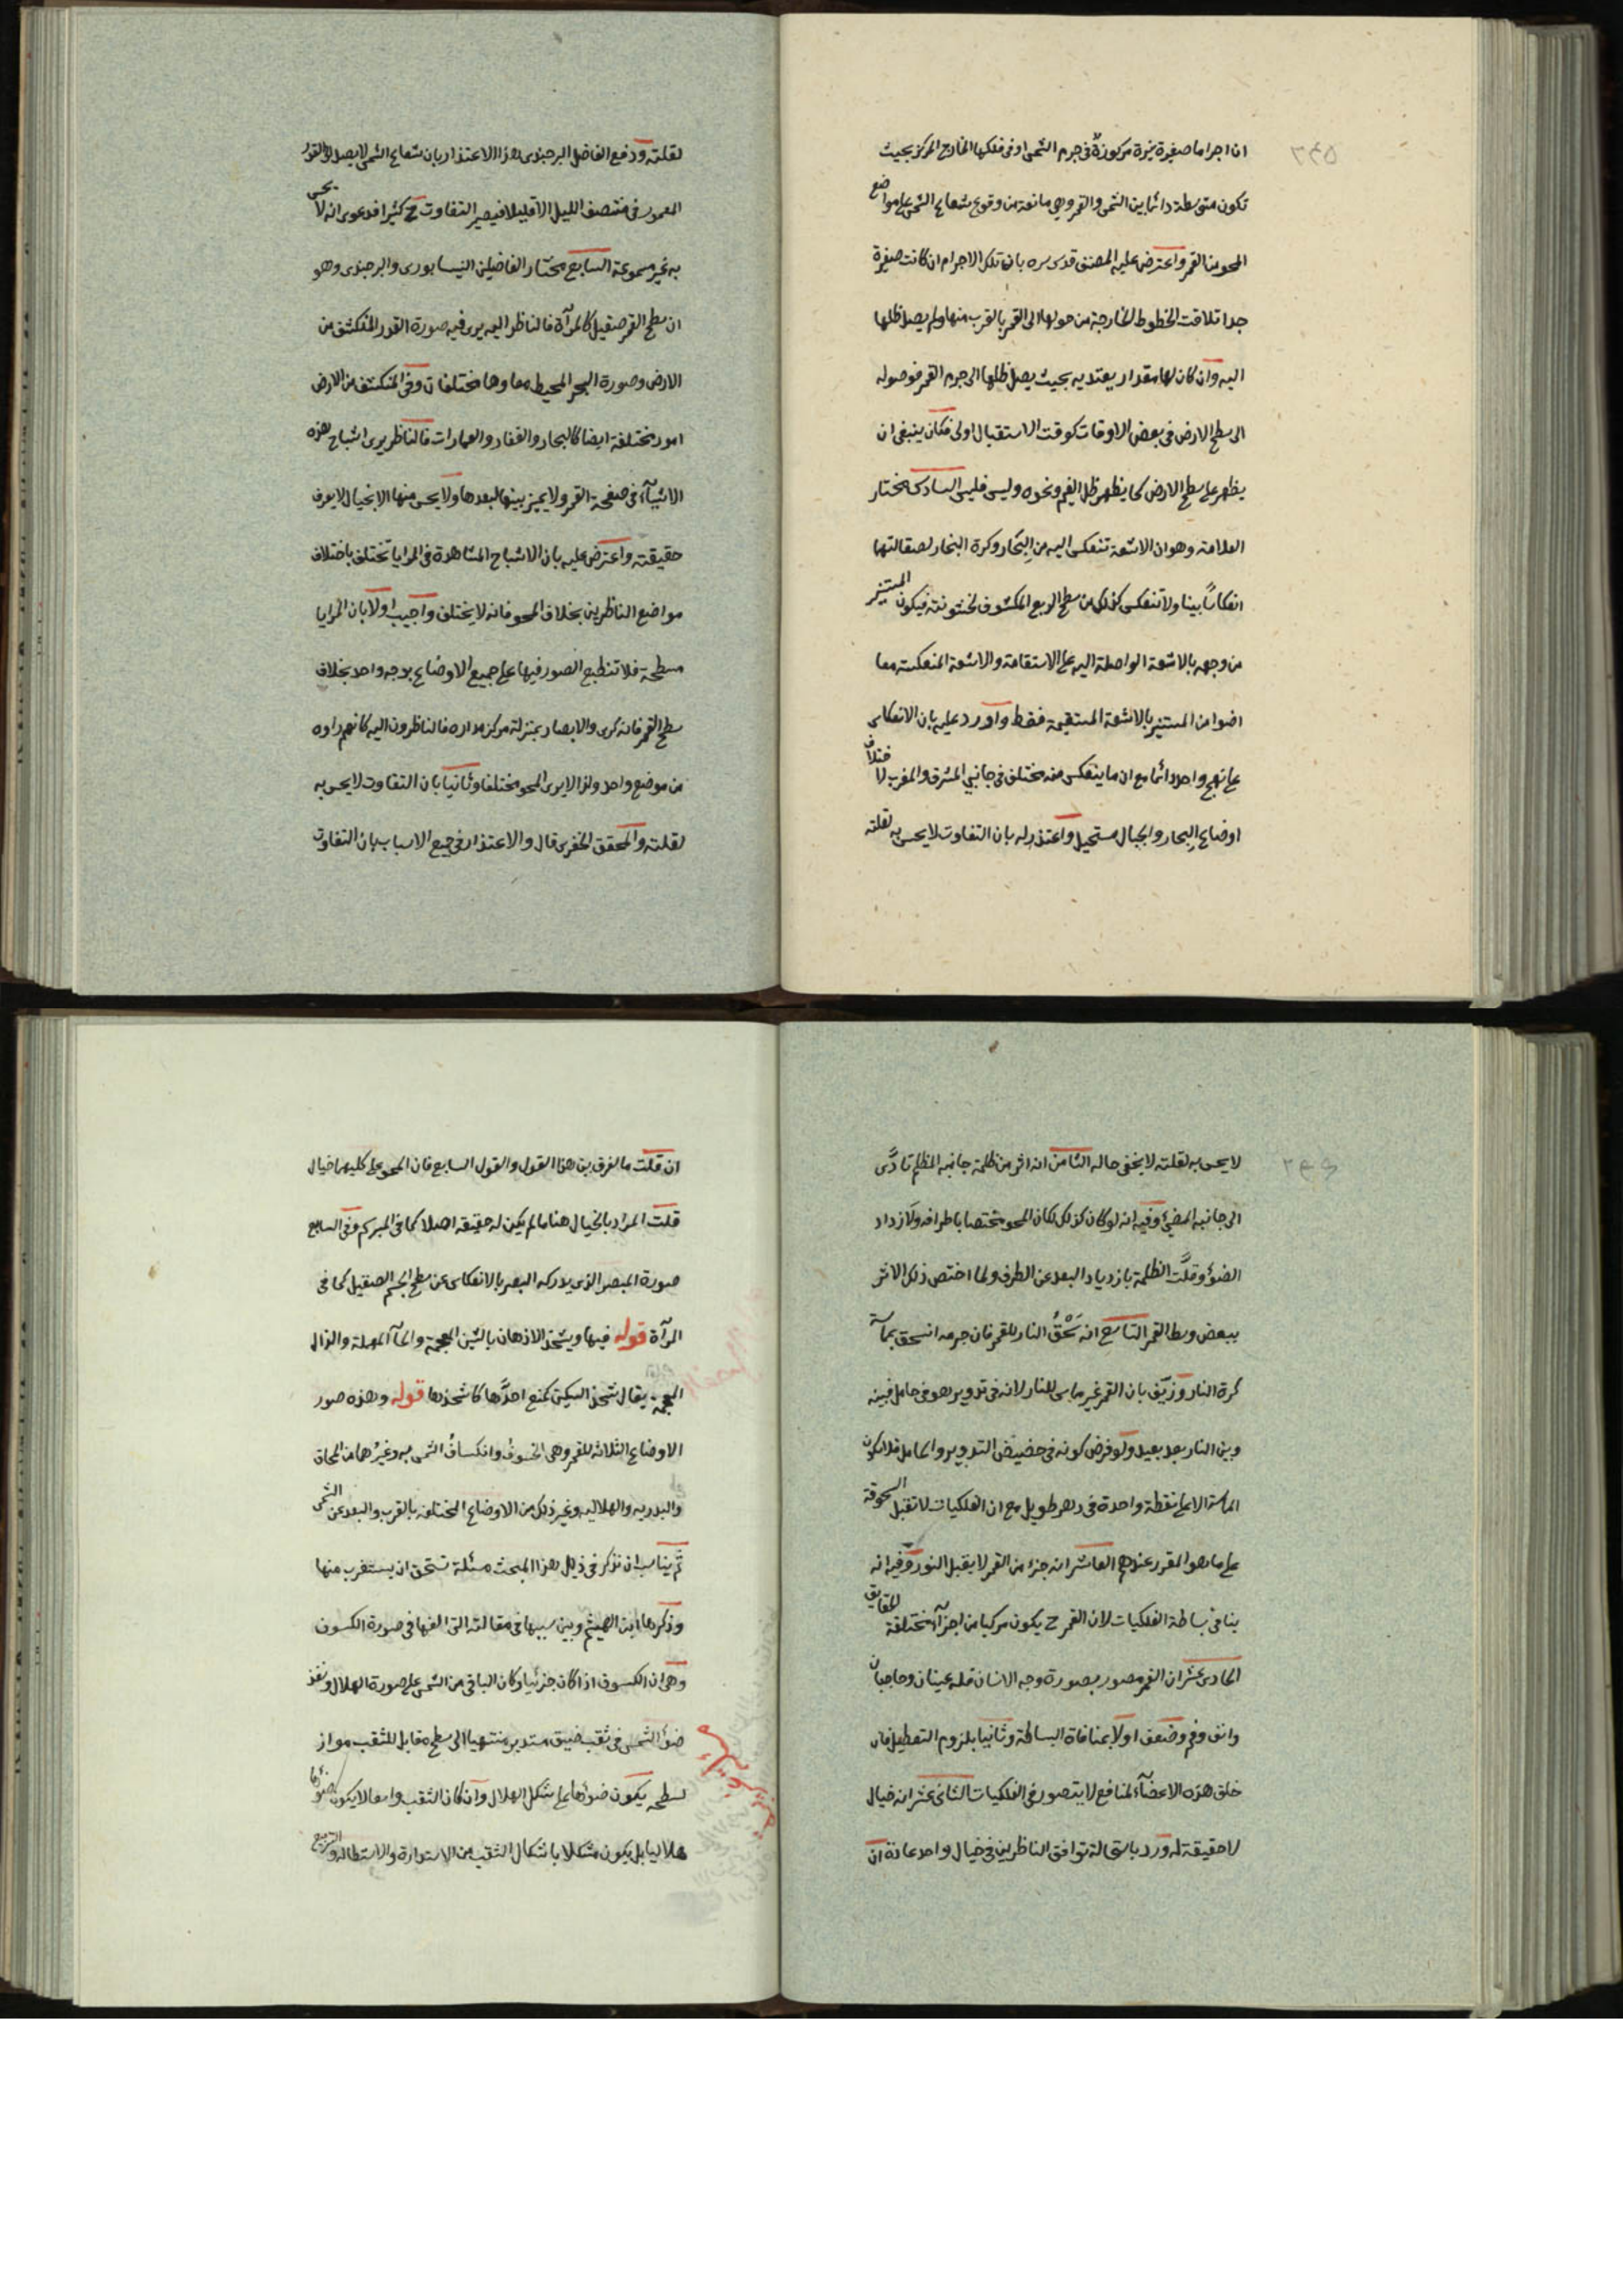 ان اجراما صغيرة نيرة مركوزة في جرم الشمس او في فلكها الخارج المركز بحيث
تكون متوسطة دائما بين الشمس والقمر وهي مانعة من وقوع شعاع الشمس على مواضع
المحو من القمر واعترض عليه المصنف قدس سره بان تلك الاجرام ان كانت صغيرة
جدا تلاقت الخطوط الخارجة من حولها الى القمر بالقرب منها ولم يصل ظلها
اليه وان كان لها مقدار يعتد به بحيث يصل ظلها الى جرم القمر فوصوله
الى سطح الارض في بعض الاوقات كوقت الاستقبال اولى فكان ينبغي ان
يظهر على سطح الارض كما يظهر ظل الغيم ونحوه وليس فليس السادس مختار
العلامة وهو ان الاشعة تنعكس اليه من البحار وكرة البخار لصقالتها
انعكاسا بينا ولا تنعكس كذلك من سطح الربع المكشوف لخشونته فيكون المستنير
من وجهه بالاشعة الواصلة اليه على الاستقامة والاشعة المنعكسة معا
اضوا من المستنير بالاشعة المستقيمة فقط واورد عليه بان الانعكاس
على نهج واحد دائما مع ان ما ينعكس منه مختلف في جانبي المشرق والمغرب لاختلاف
اوضاع البحار والجبال مستحيل واعتذر له بان التفاوت لا يحس به لقلته
لقلته ودفع الفاضل البرجندى هذا الاعتذار بان شعاع الشمس لا يصل الى القدر
المعمور في منتصف الليل الا قليلا فيصير التفاوت ح كثيرا فدعوى انه لا يحس
به غير مسموعة السابع مختار الفاضلين النيسابورى والبرجندى وهو
ان سطح القمر صقيل كالمرآة فالناظر اليه يرى فيه صورة القدر المنكشف من
الارض وصورة البحر المحيط معا وهما مختلفان وفي المنكشف من الارض
امور مختلفة ايضا كالبحار والقفار والعمارات فالناظر يرى اشباح هذه
الاشيآء في صفحة القمر ولا يميز بينها لبعدها ولا يحس منها الا بخيال لا يعرف
حقيقته واعترض عليه بان الاشباح المشاهدة في المرايا تختلف باختلاف
مواضع الناظرين بخلاف المحو فانه لا يختلف واجيب اولا بان المرايا
مسطحة فلا تنطبع الصور فيها على جميع الاوضاع بوجه واحد بخلاف
سطح القمر فانه كرى والابصار بمنزلة مركز مداره فالناظرون اليه كانهم راوه
من موضع واحد ولذا لا يرى المحو مختلفا وثانيا بان التفاوت لا يحس به
لقلته والمحقق الخفرى قال والاعتذار في جميع الاسباب بان التفاوت
لا يحس به لقلته لا يخفى حاله الثامن انه اثر من ظلمة جانبه المظلم تادى
الى جانبه المضئ وفيه انه لو كان كذلك لكان المحو مختصا باطرافه ولازداد
الضوء وقلت الظلمة بازدياد البعد عن الطرف ولما اختص ذلك الاثر
ببعض وسط القمر التاسع انه سحق النار للقمر فان جرمه انسحق بمماسة
كرة النار وزيف بان القمر غير مماس للنار لانه في تدوير هو في حامل فبينه
وبين النار بعد بعيد ولو فرض كونه في حضيض التدوير والحامل فلا يكون
المماسة الا على نقطة واحدة في دهر طويل مع ان الفلكيات لا تقبل السحوقة
على ما هو المقرر عندهم العاشر انه جزء من القمر لا يقبل النور وفيه انه
ينافي بساطة الفلكيات لان القمر ح يكون مركبا من اجزآء مختلفة الحقايق
الحادى عشر ان القمر مصور بصورة وجه الانسان فله عينان وحاجبان
وانف وفم وضعف اولا بمنافاة البساطة وثانيا بلزوم التعطيل فان
خلق هذه الاعضآء لمنافع لا يتصور في الفلكيات الثانى عشر انه خيال
لا حقيقة له ورد باستحالة توافق الناظرين في خيال واحد عادة ان
ان قلت ما الفرق بين هذا القول والقول السابع فان المحو على كليهما خيال
قلت المراد بالخيال هنا ما لم يكن له حقيقة اصلا كما في المبرسم وفي السابع
صورة المبصر الذى يدركه البصر بالانعكاس عن سطح الجسم الصقيل كما في
المرآة قوله فيها ويشحذ الاذهان بالشين المعجمة والحآ المهملة والذال
المعجمة يقال شحذ السكين كمنع احدها كاشحذها قوله وهذه صور
الاوضاع الثلاثة للقمر وهي الخسوف وانكساف الشمس به وغيرهما من المحاق
والبدرية والهلالية وغير ذلك من الاوضاع المختلفة بالقرب والبعد عن الشمس
ثم يناسب ان نذكر في ذيل هذا المبحث مسئلة تستحق ان يستغرب منها
وذكرها ابن الهيثم وبين سببها في مقالته التى الفها في صورة الكسوف
وهي ان الكسوف اذا كان جزئيا وكان الباقى من الشمس على صورة الهلال ونفذ
ضوء الشمس في ثقب ضيق مستدير منتهيا الى سطح مقابل للثقب مواز
لسطحه يكون ضوئها على شكل الهلال وان كان الثقب واسعا لا يكون ضوئها
هلاليا بل يكون مشكلا باشكال الثقب من الاستدارة والاستطالة والتربيع